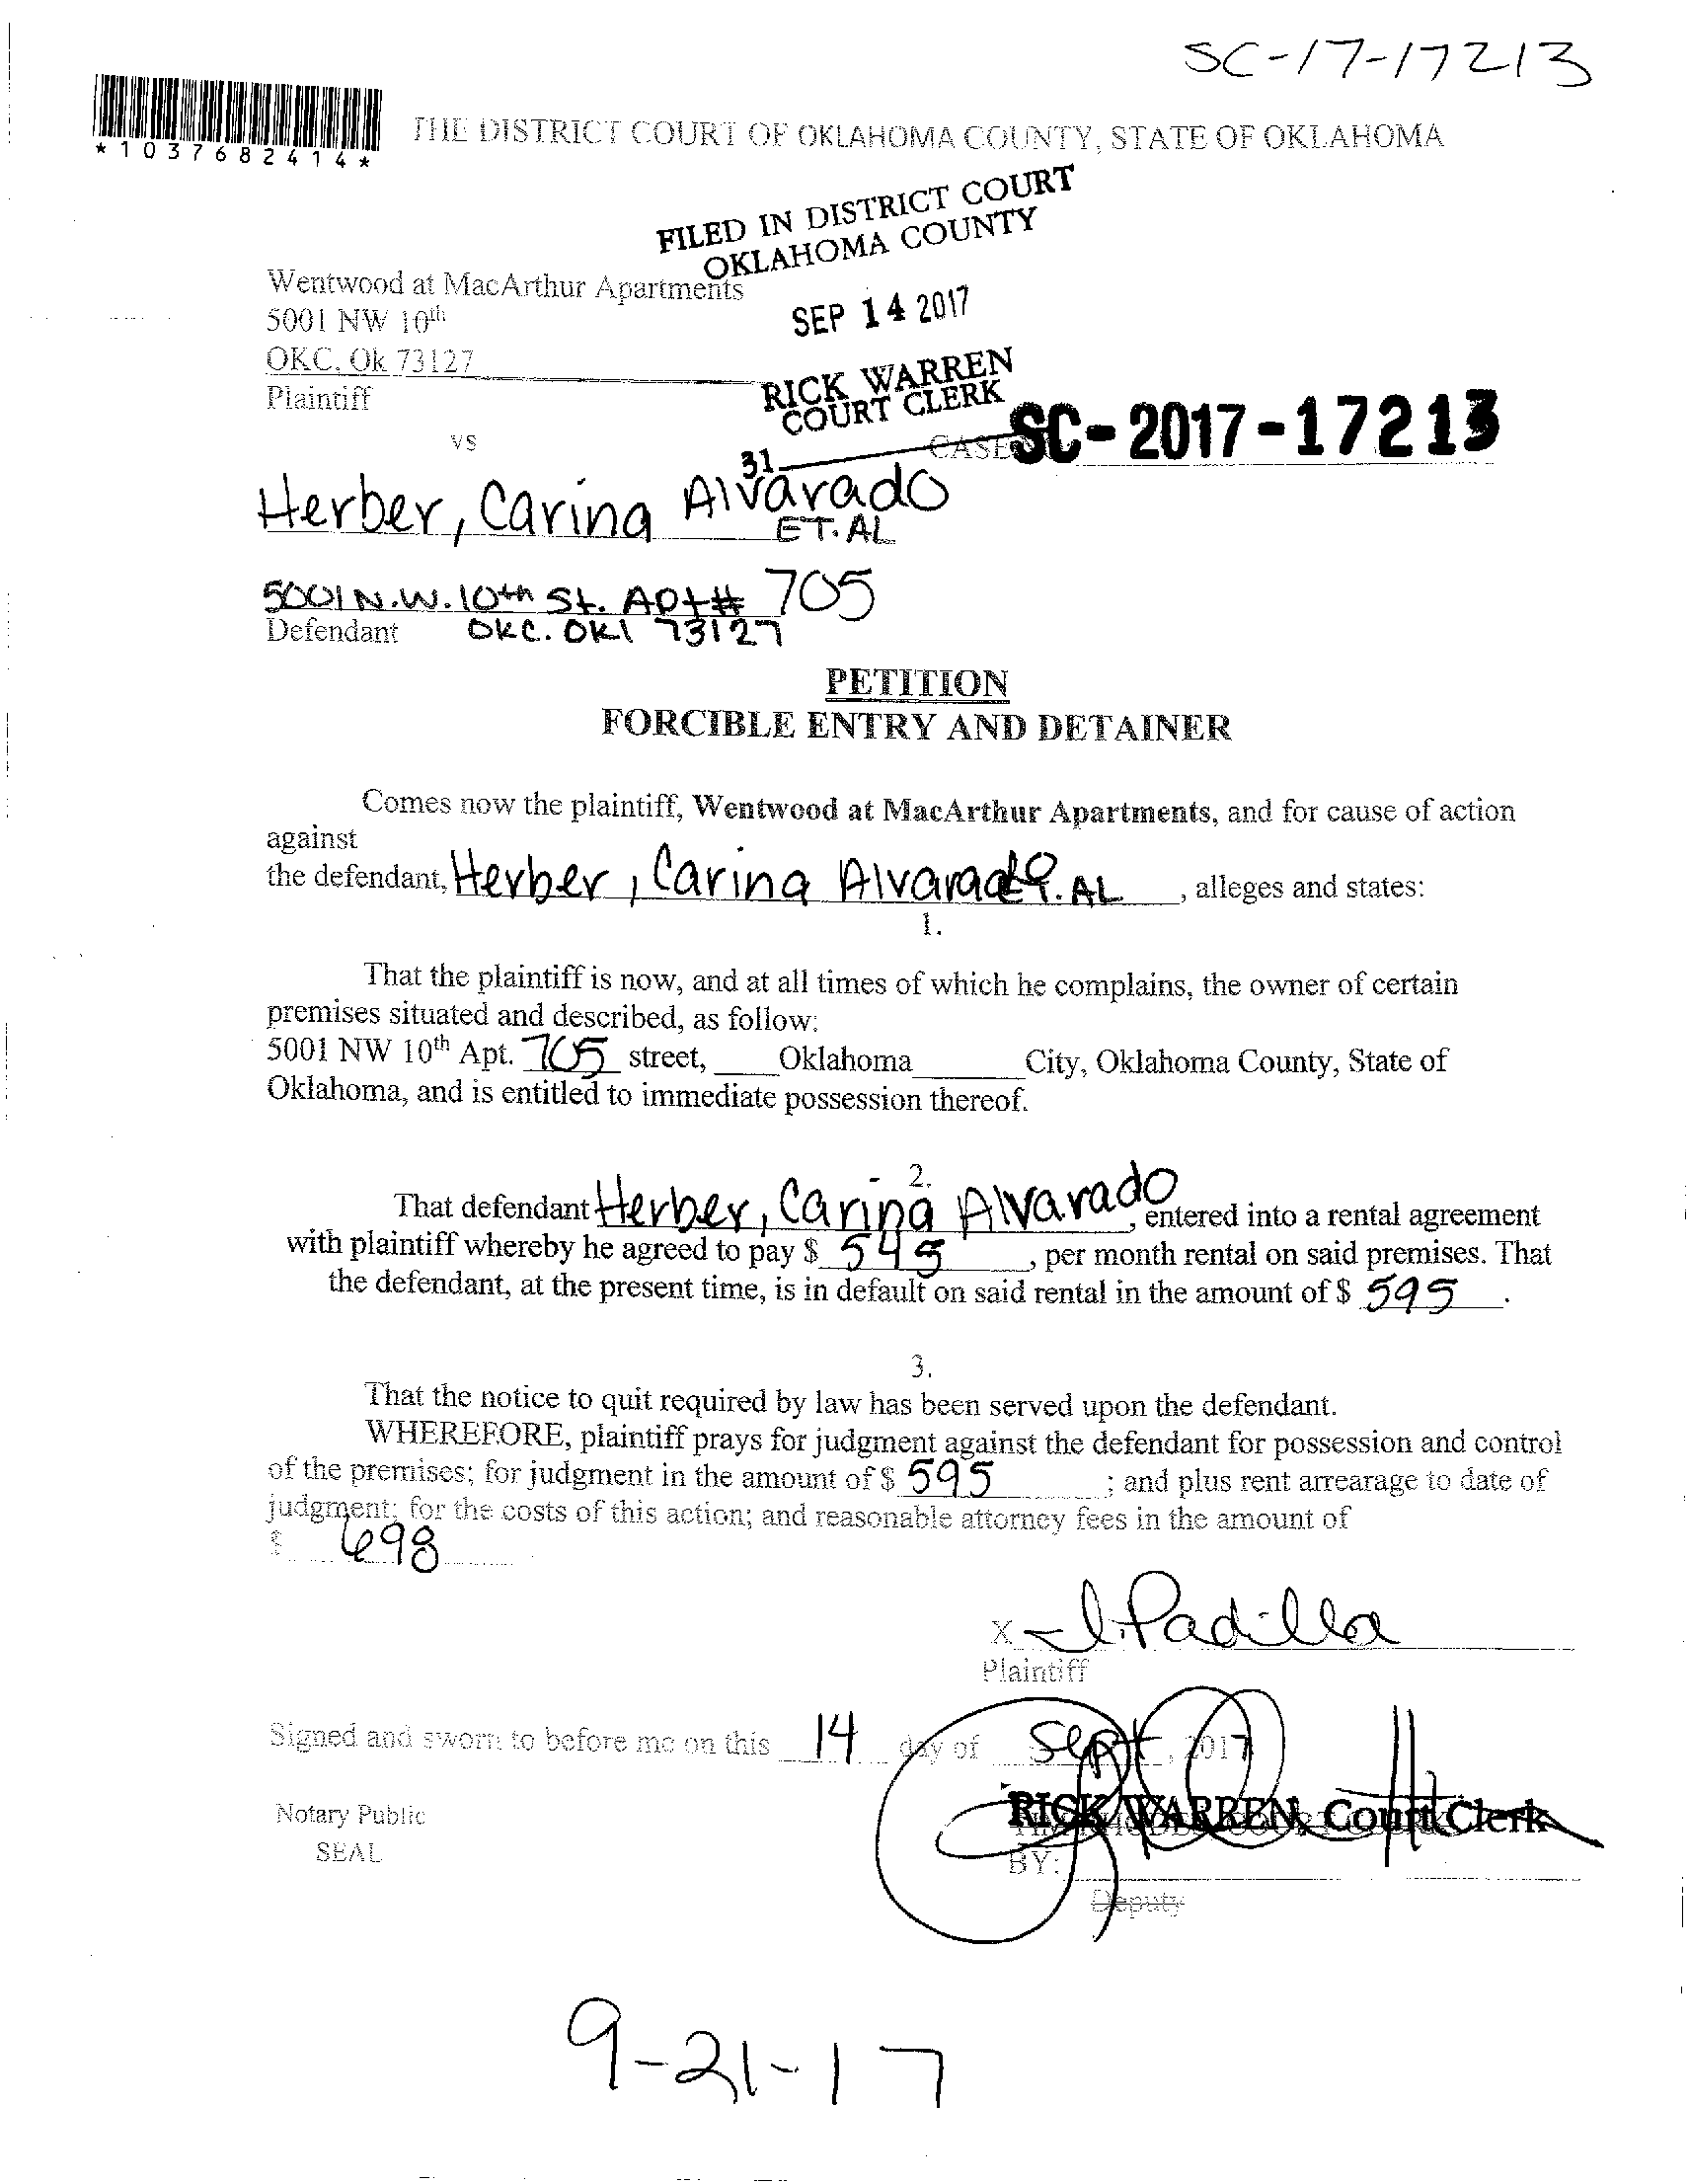 SC-17-17213
*1037682414*
THE DISTRICT COURT OF OKLAHOMA COUNTY, STATE OF OKLAHOMA
FILED IN DISTRICT COURT
OKLAHOMA COUNTY
Wentwood at MacArthur Apartments
5001 NW 10th
SEP 14 2017
OKC, Ok 73127
RICK WARREN
COURT CLERK
Plaintiff
vs
31
CASE SC-2017-17213
Herber, Carina Alvarado
ET. AL
5001 N.W. 10th St. Apt# 705
Defendant OKC. OKl 73127
PETITION
FORCIBLE ENTRY AND DETAINER
Comes now the plaintiff, Wentwood at MacArthur Apartments, and for cause of action
against
the defendant, Herber, Carina Alvarado ET. AL, alleges and states:
1.
That the plaintiff is now, and at all times of which he complains, the owner of certain
premises situated and described, as follow:
5001 NW 10th Apt. 705 street, Oklahoma City, Oklahoma County, State of
Oklahoma, and is entitled to immediate possession thereof.
2.
That defendant Herber, Carina Alvarado, entered into a rental agreement
with plaintiff whereby he agreed to pay $ 545, per month rental on said premises. That
the defendant, at the present time, is in default on said rental in the amount of $ 595.
3.
That the notice to quit required by law has been served upon the defendant.
WHEREFORE, plaintiff prays for judgment against the defendant for possession and control
of the premises; for judgment in the amount of $ 595; and plus rent arrearage to date of
judgment; for the costs of this action; and reasonable attorney fees in the amount of
$ 698
X I. Padilla
Plaintiff
Signed and sworn to before me on this 14 day of Sept, 2017
RICK WARREN, Court Clerk
Notary Public
SEAL
BY:
Deputy
9-21-17